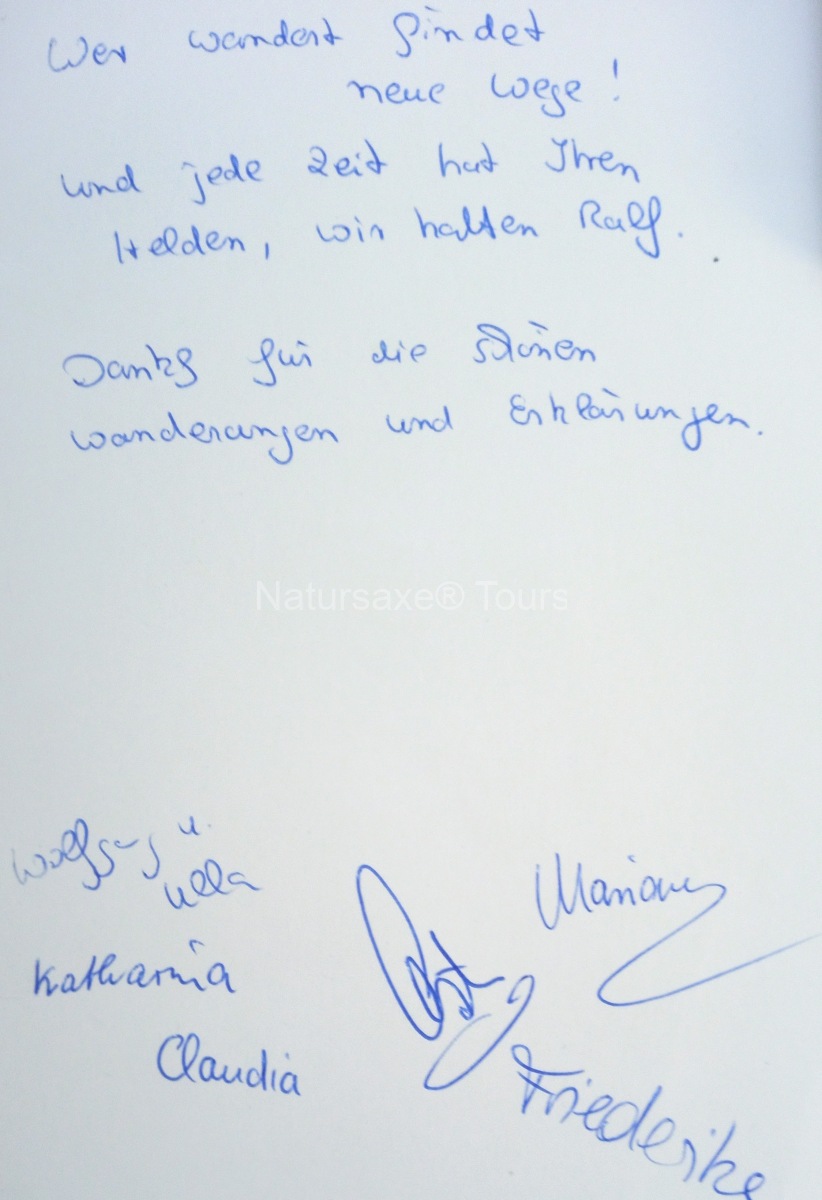 Wer wandert findet
neue Wege!
und jede Zeit hat Ihren
Helden, wir hatten Ralf.
Danke für die schönen
Wanderungen und Erklärungen.
Natursaxe® Tours
Wolfgang u.
Ulla
Katharina
Claudia
Friederike